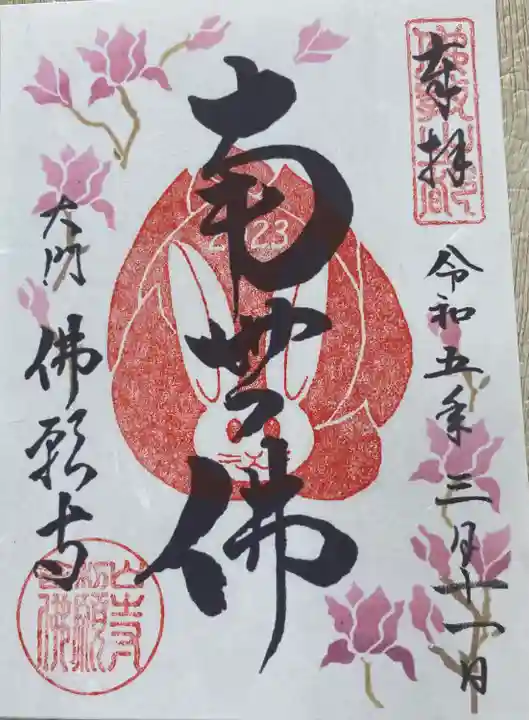 奉拝
令和五年三月十一日
2023
南無佛
大門
佛願寺